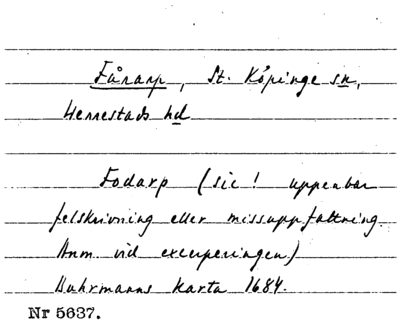 Fårarp, St. Köpinge sn,
Herrestads hd
Fodarp (sic! uppenbar
felskrivning eller missuppfattning.
Anm. vid excerperingen)
Buhrmanns karta 1684.
Nr 5637.